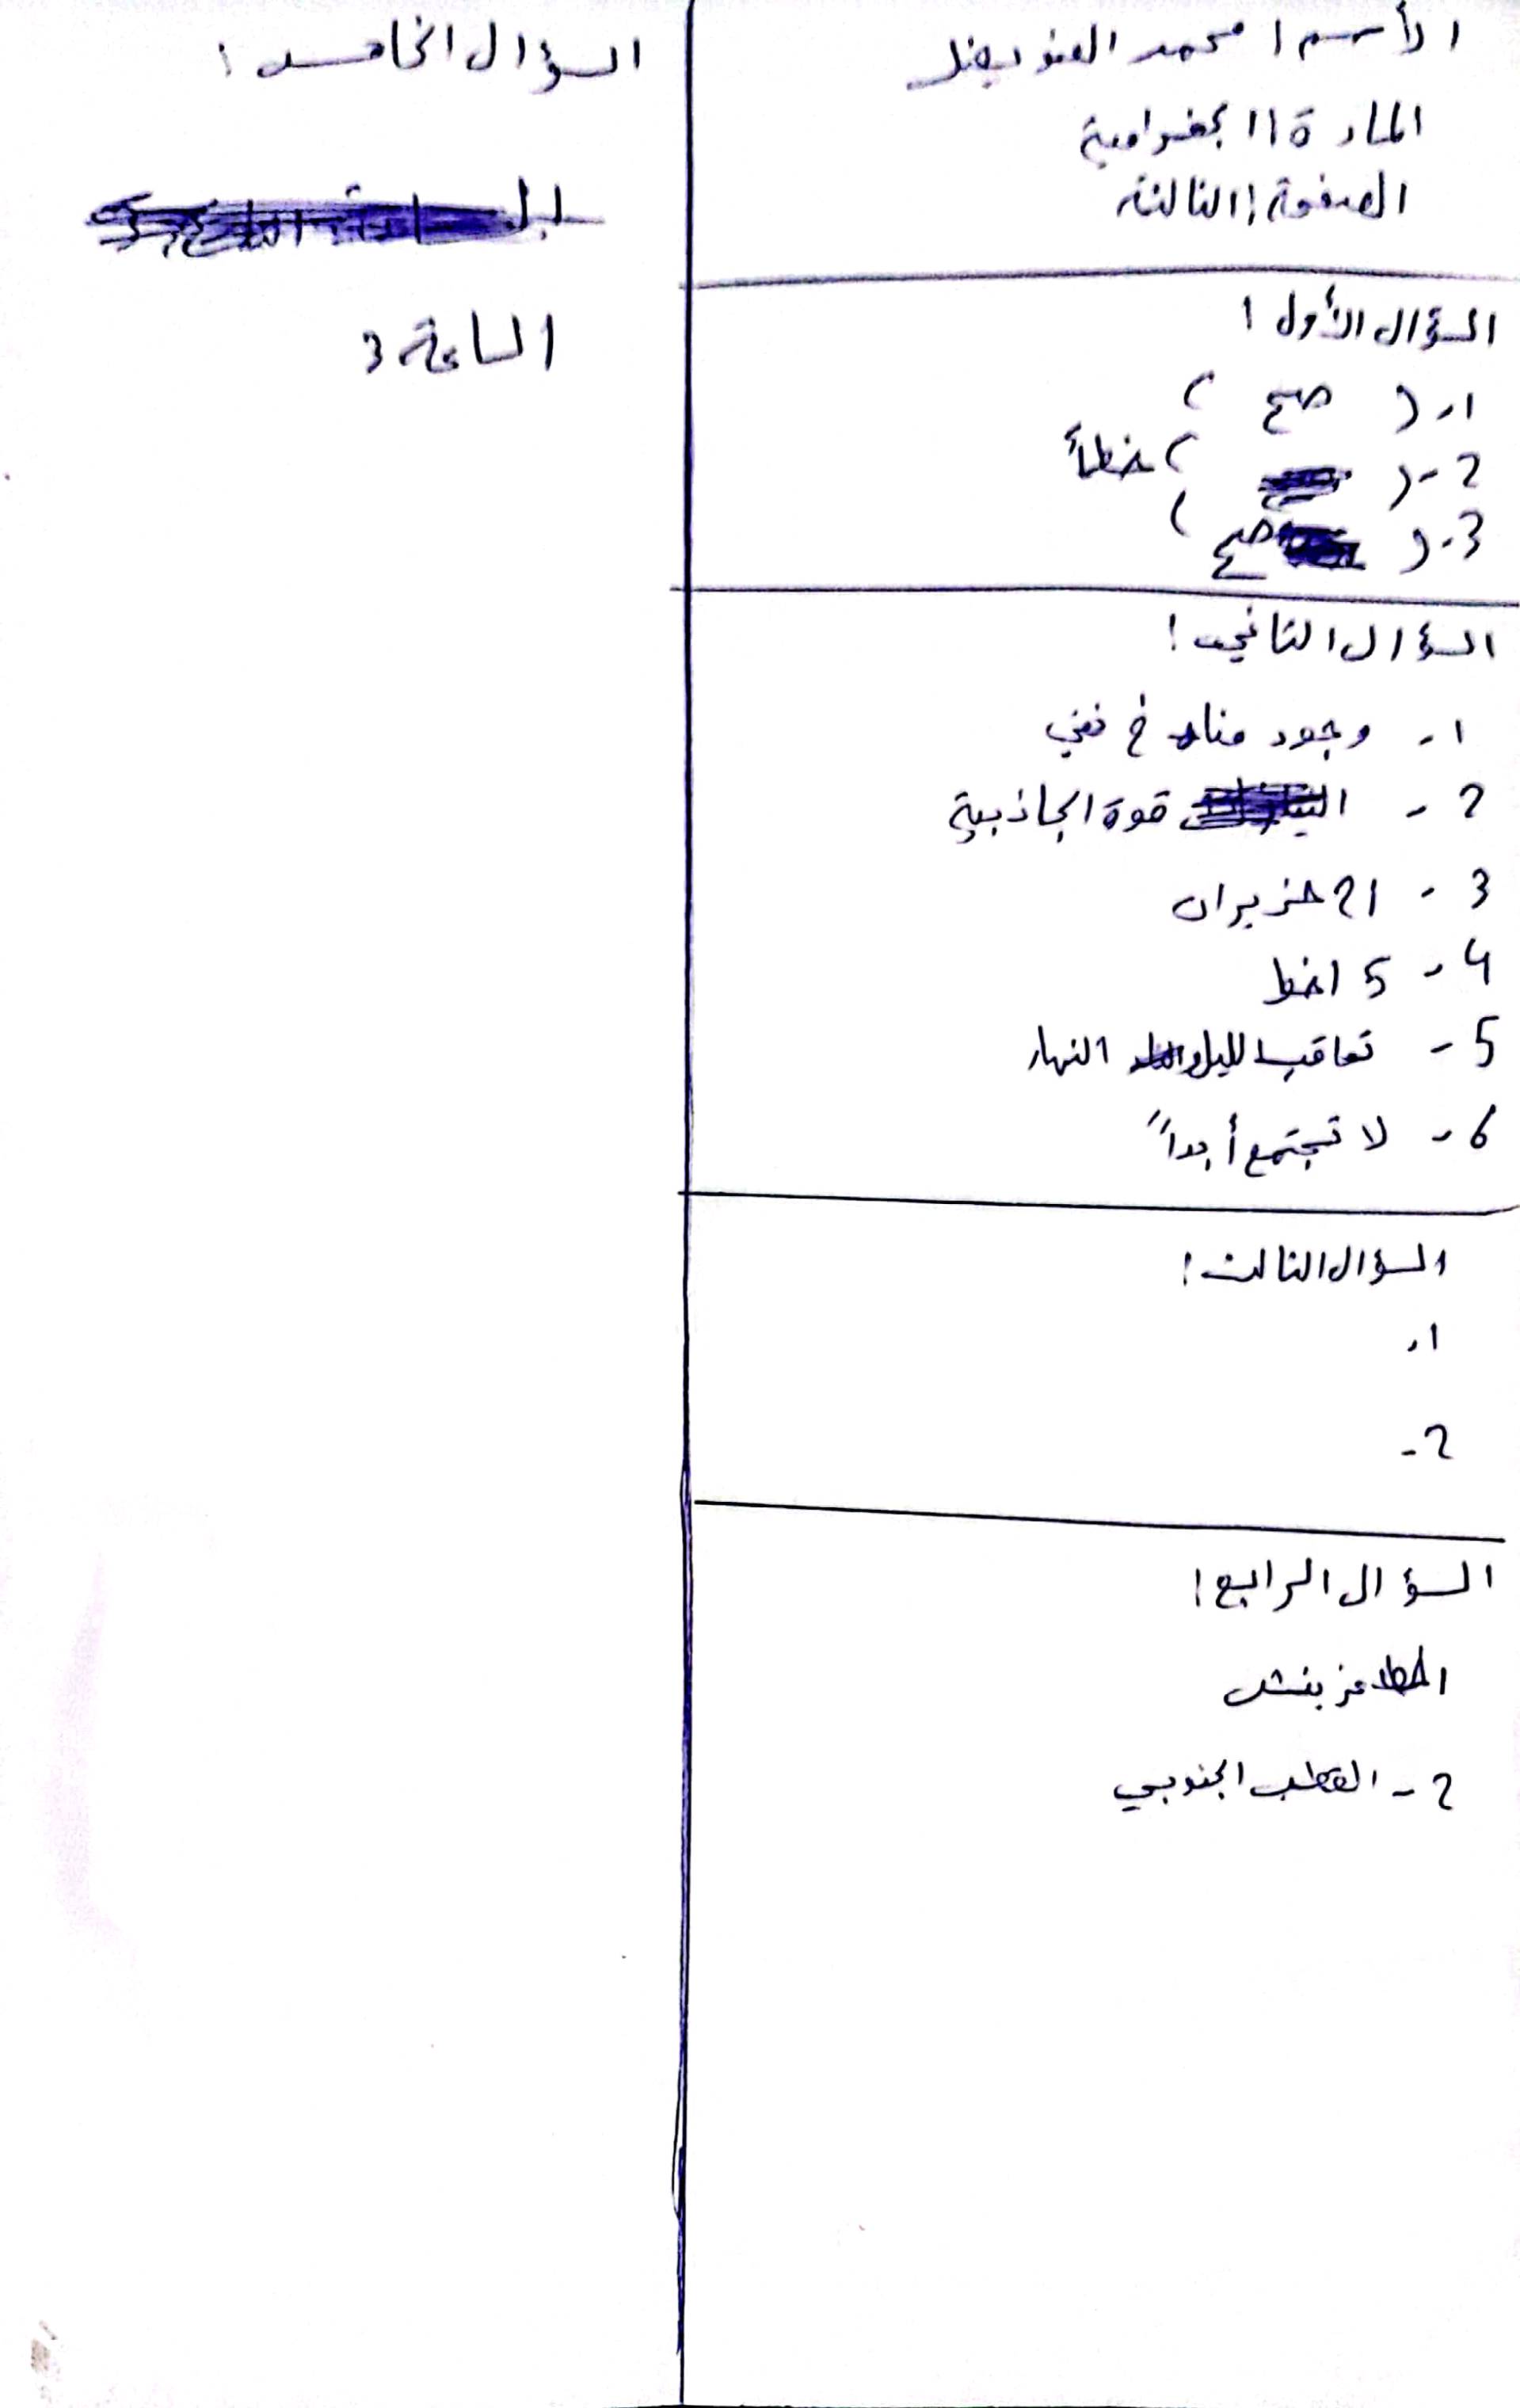 الأسم ! محمد
المادة ! الجغرافية
الصفحة ! الثالثة
السؤال الأول !
1- ( صح )
2- ( ) خطأ
3- ( صح )
السؤال الثاني !
1- وجود مناخ
2- قوة الجاذبية
3- 21 حزيران
4- 5 اخط
5- تعاقب الليل و النهار
6- لا تجتمع أبداً
السؤال الثالث !
1-
2-
السؤال الرابع !
2- القطب الجنوبي
السؤال الخامس !
الساعة 3